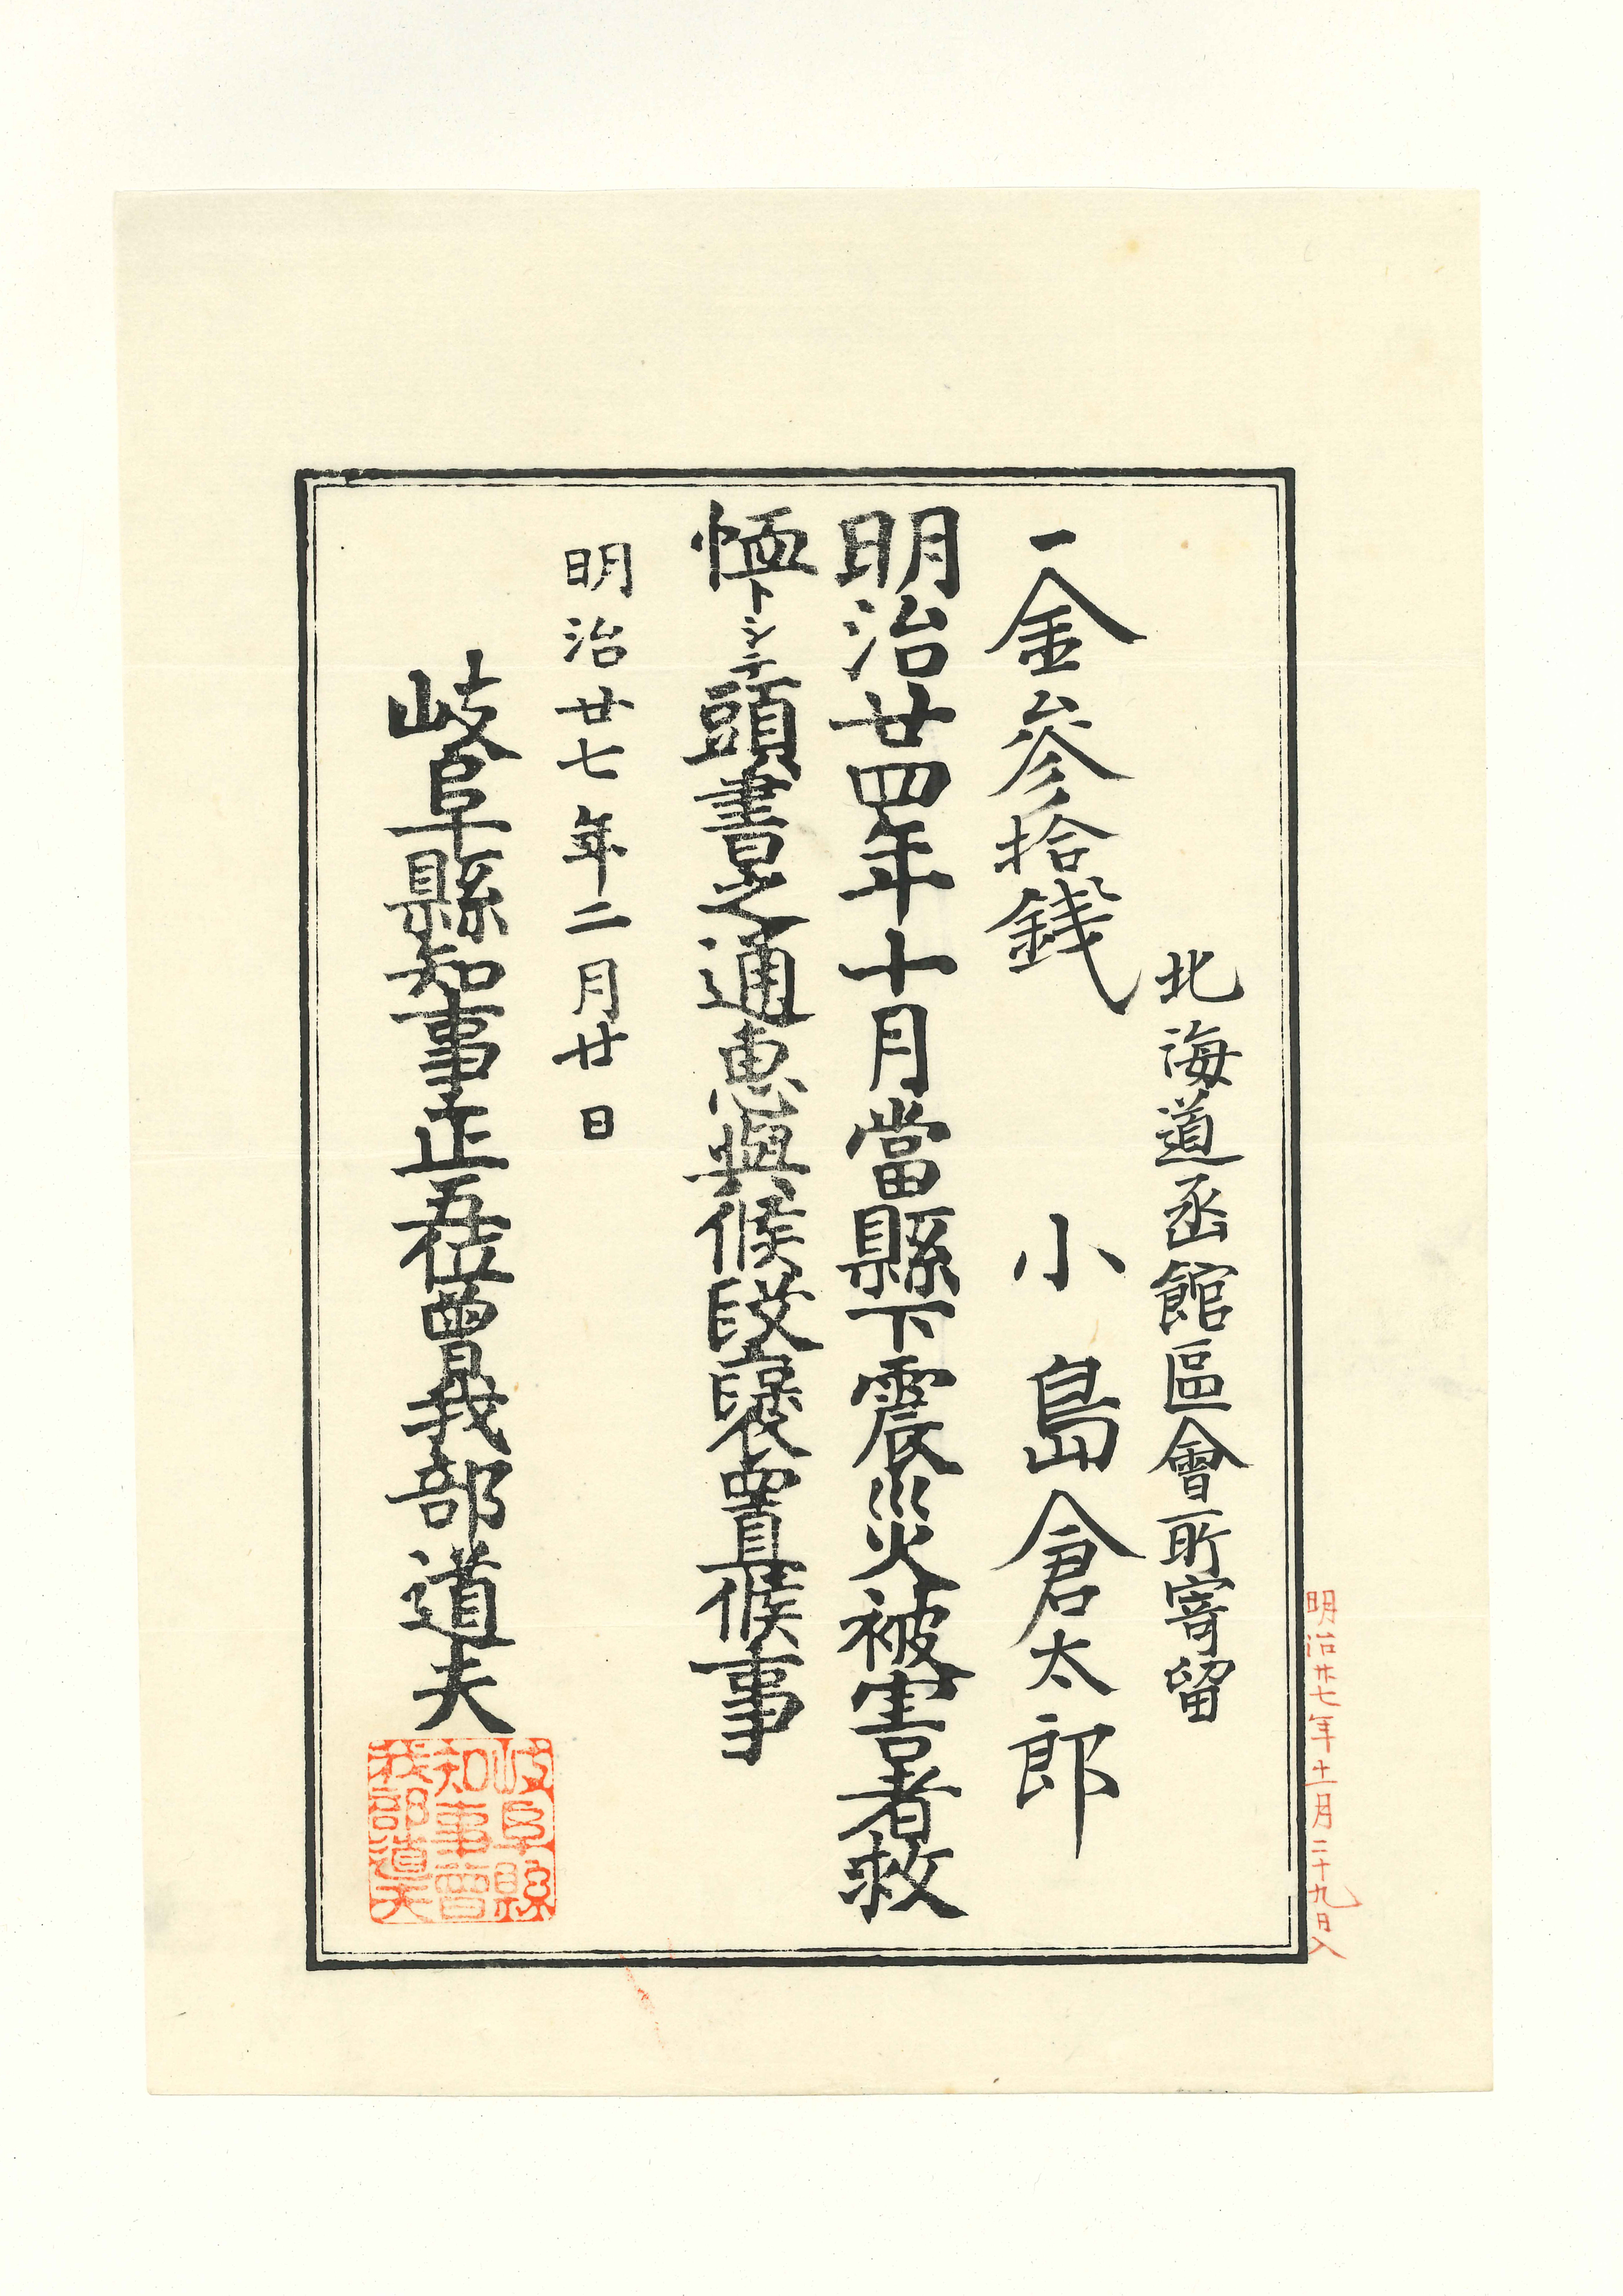 明治廿七年十一月二十九日入
北海道函館區會所寄留
一金參拾錢
小島倉太郎
明治廿四年十月當縣下震災被害者救
恤トシテ頭書之通惠與候段褒賞候事
明治廿七年二月廿日
岐阜縣知事正五位曾我部道夫
岐阜縣
知事曾
我部道夫